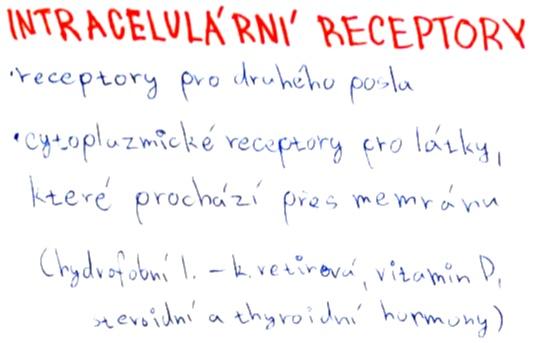 INTRACELULÁRNÍ RECEPTORY
•receptory pro druhého posla
•cytoplazmické receptory pro látky,
které prochází přes memránu
(hydrofobní l. – k. retinová, vitamin D,
steroidní a thyroidní hormony)